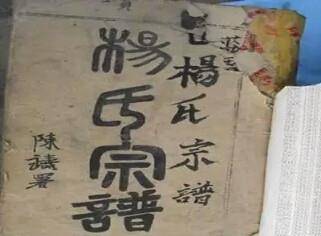 楊氏宗譜
楊氏宗譜
陳
署